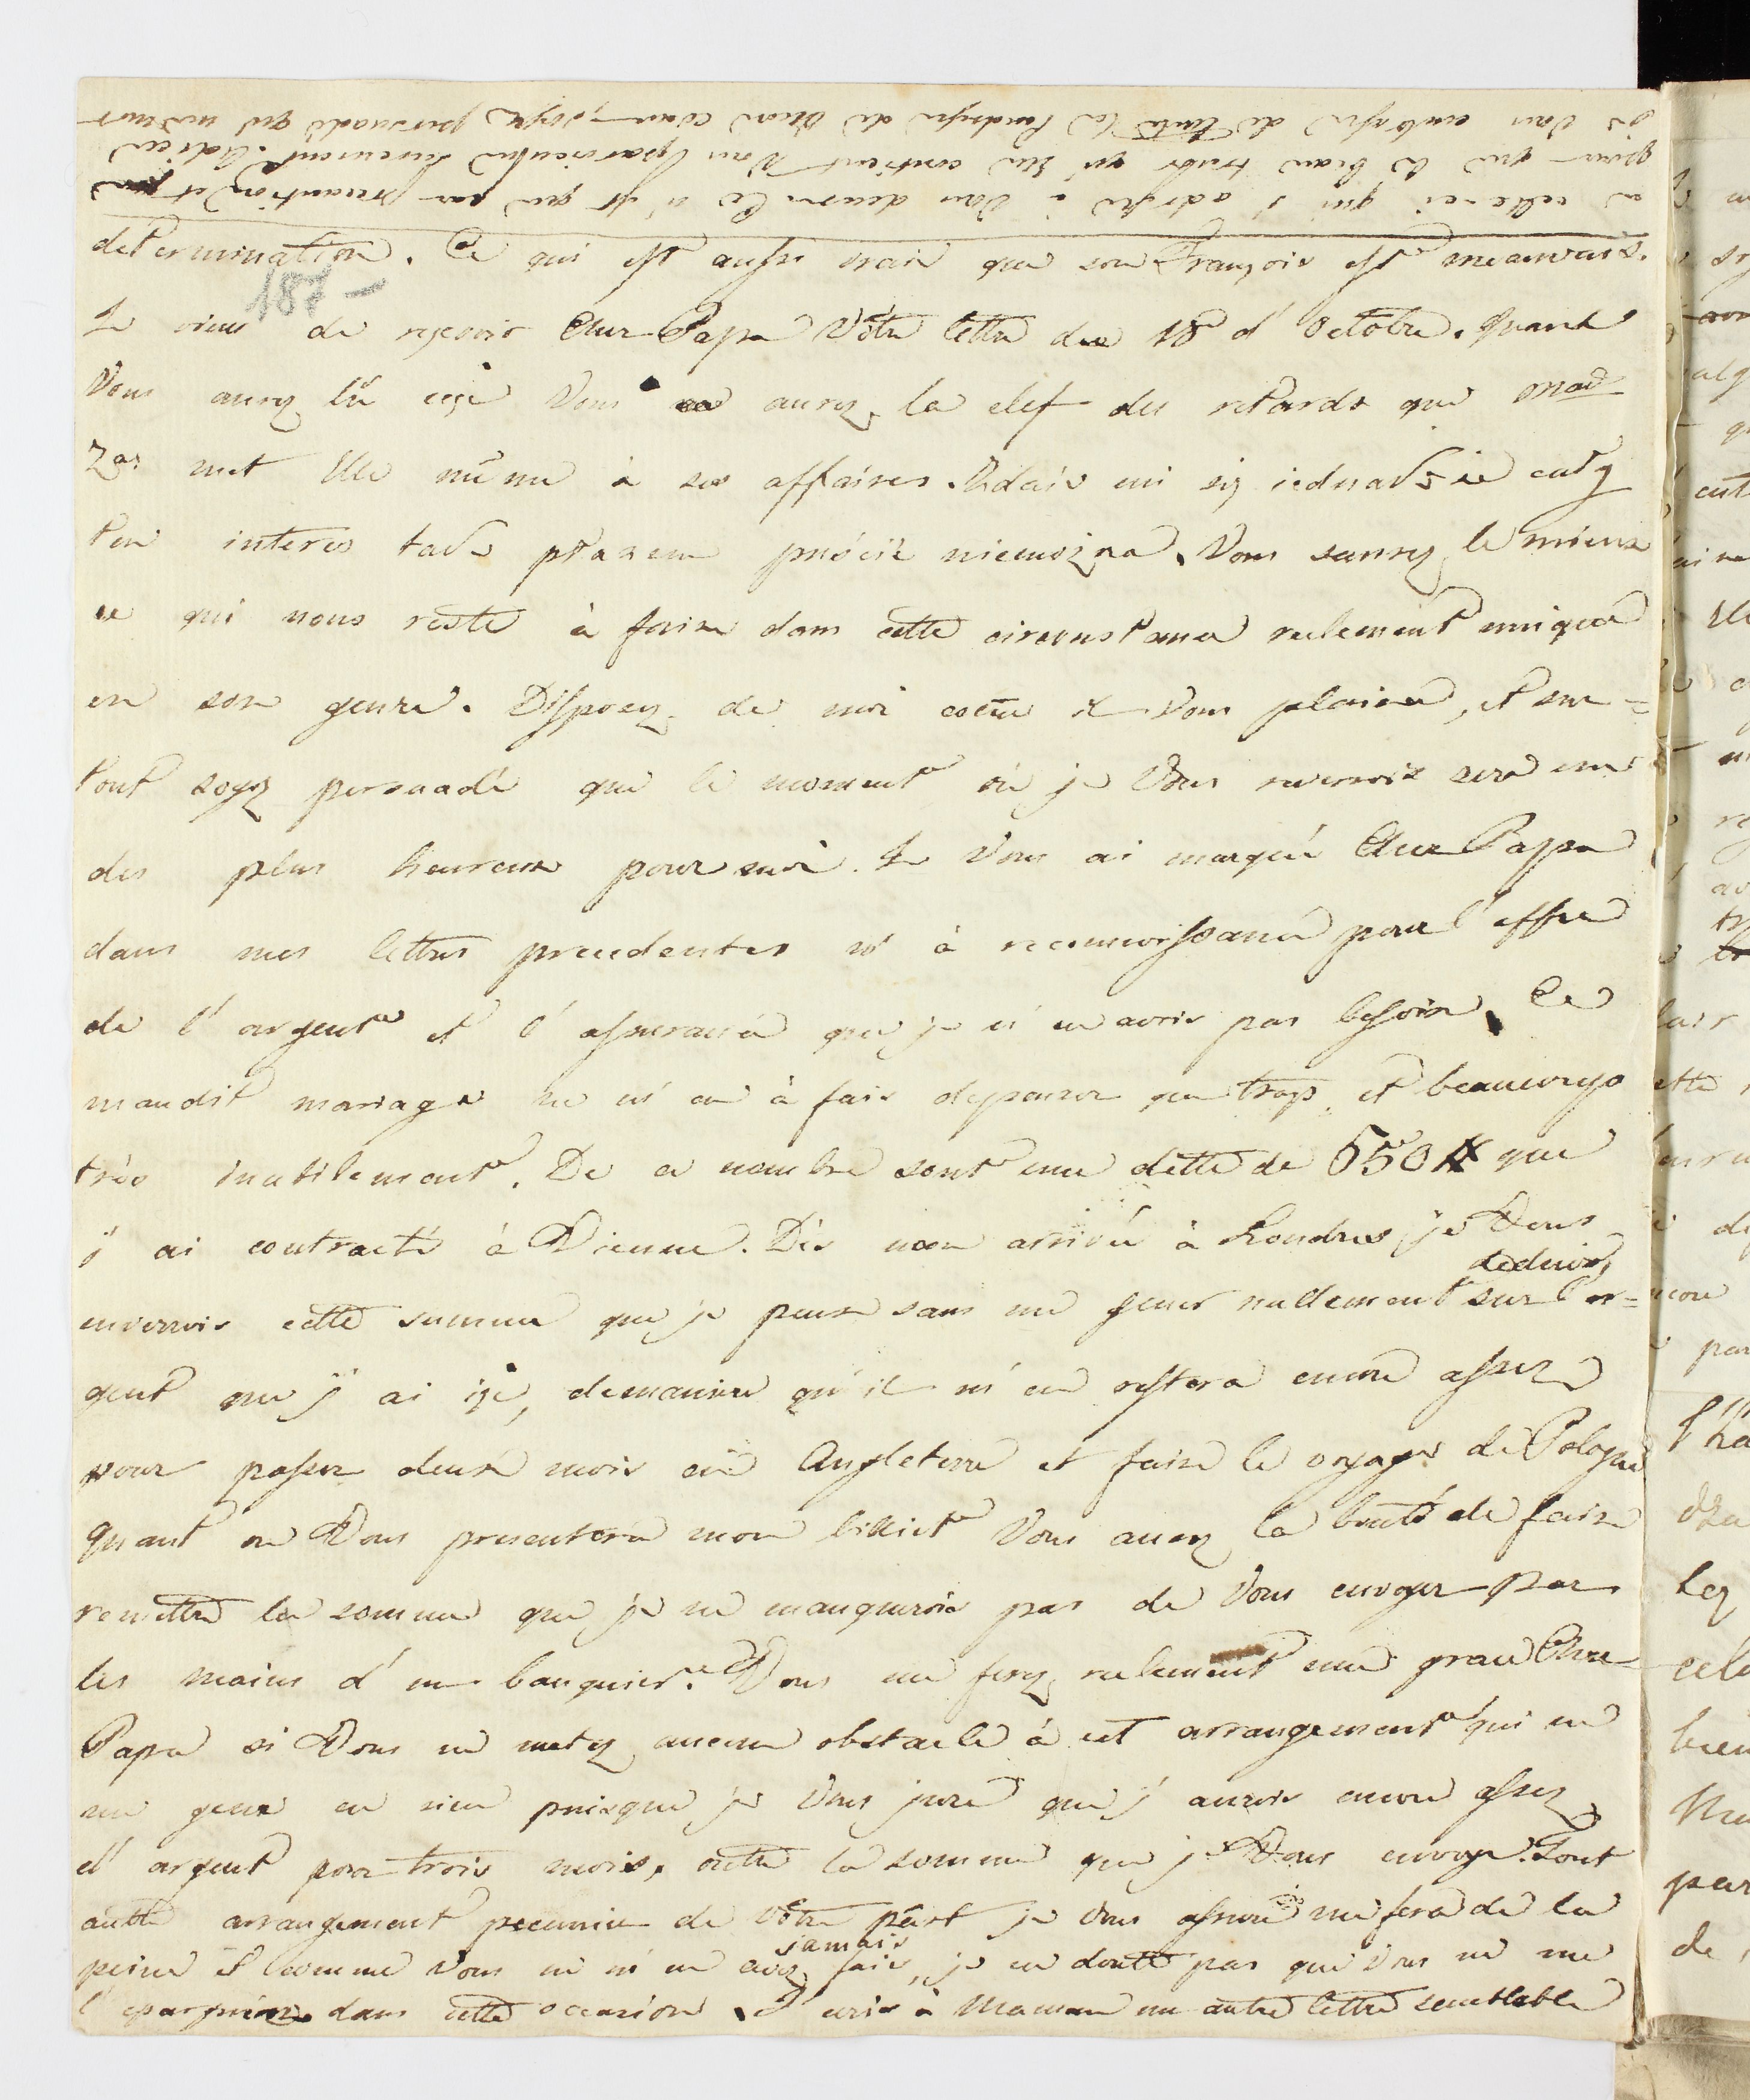 determination. Ce qui est aussi vrai que son François est meauvais.
187 –
Je viens de reçevoir Cher Papa Vôtre lettre du 18 d'Octobre. Quand
Vous aurez lû ceçi Vous aurez la clef des retards que Mad
met Elle même à ses affaires. Vous saurez le mieux
ce qui nous reste à faire dans cette circonstance reelement unique
en son genre. Disposez de moi come il Vous plaira, et sur=
tout soyez persuadé que le moment où je Vous reverrois sera un
des plus heureux pour moi. Je Vous ai marqué Cher Papa
dans mes lettres precedentes à reconnoissance pour l'offre
de l'argent et l'assurance que je n'en avois pas besoin. Ce
maudit mariage ne m'en à fait depenser que trop, et beaucoup
très inutilement. De ce nombre sont une dette de 550 # que
j'ai contracté à Vienne. Dès mon arrivée à Londres je Vous
enverrois cette somme que je peux sans me gener nullement deduire sur l'ar=
gent que j'ai içi, de maniere qu'il m'en restera encore assez
pour passer deux mois en Angleterre et faire le voyage de Pologne
Quant on Vous presentera mon billiet Vous aurez la bonté de faire
remettre la somme que je ne manquerois pas de Vous envoyer par
les mains d'un banquier. Vous me ferez reelement une grace Cher
Papa si Vous ne metez aucun obstacle à cet arrangement qui ne
me gene en rien puisque je Vous jure que j'aurois encore assez
d'argent pour trois mois, outre la somme que je Vous envoye. Tout
autre arrangement pecunier de Vôtre part je Vous assure me fera de la
peine et comme Vous ne m'en avez jamais fait, je ne doute pas que Vous ne me
l'epargniez dans cette occasion. J'ecris à Maman une autre lettre semblable
à celle-ci qui s'adresse à Vous deux. Ce n'est que par precaution et
pour que le beau trubr qu'elle contient Vous parviennent surement. Adieu
je Vous embrasse de toute la tendresse de mon cœur, soyez persuadé que